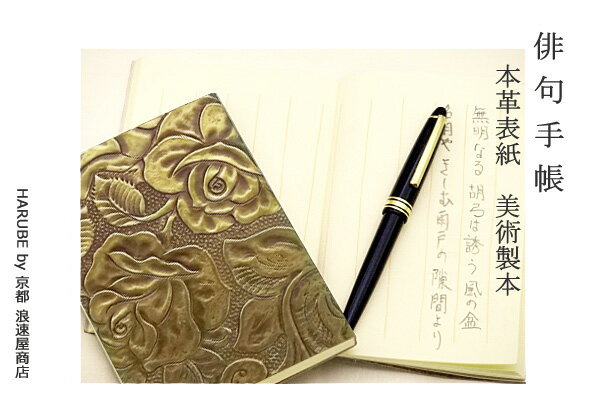 俳句手帳
本革表紙　美術製本
無明なる 胡弓は誘う 風の盆
名月や きしむ雨戸の 隙間より
HARUBE by 京都 浪速屋商店